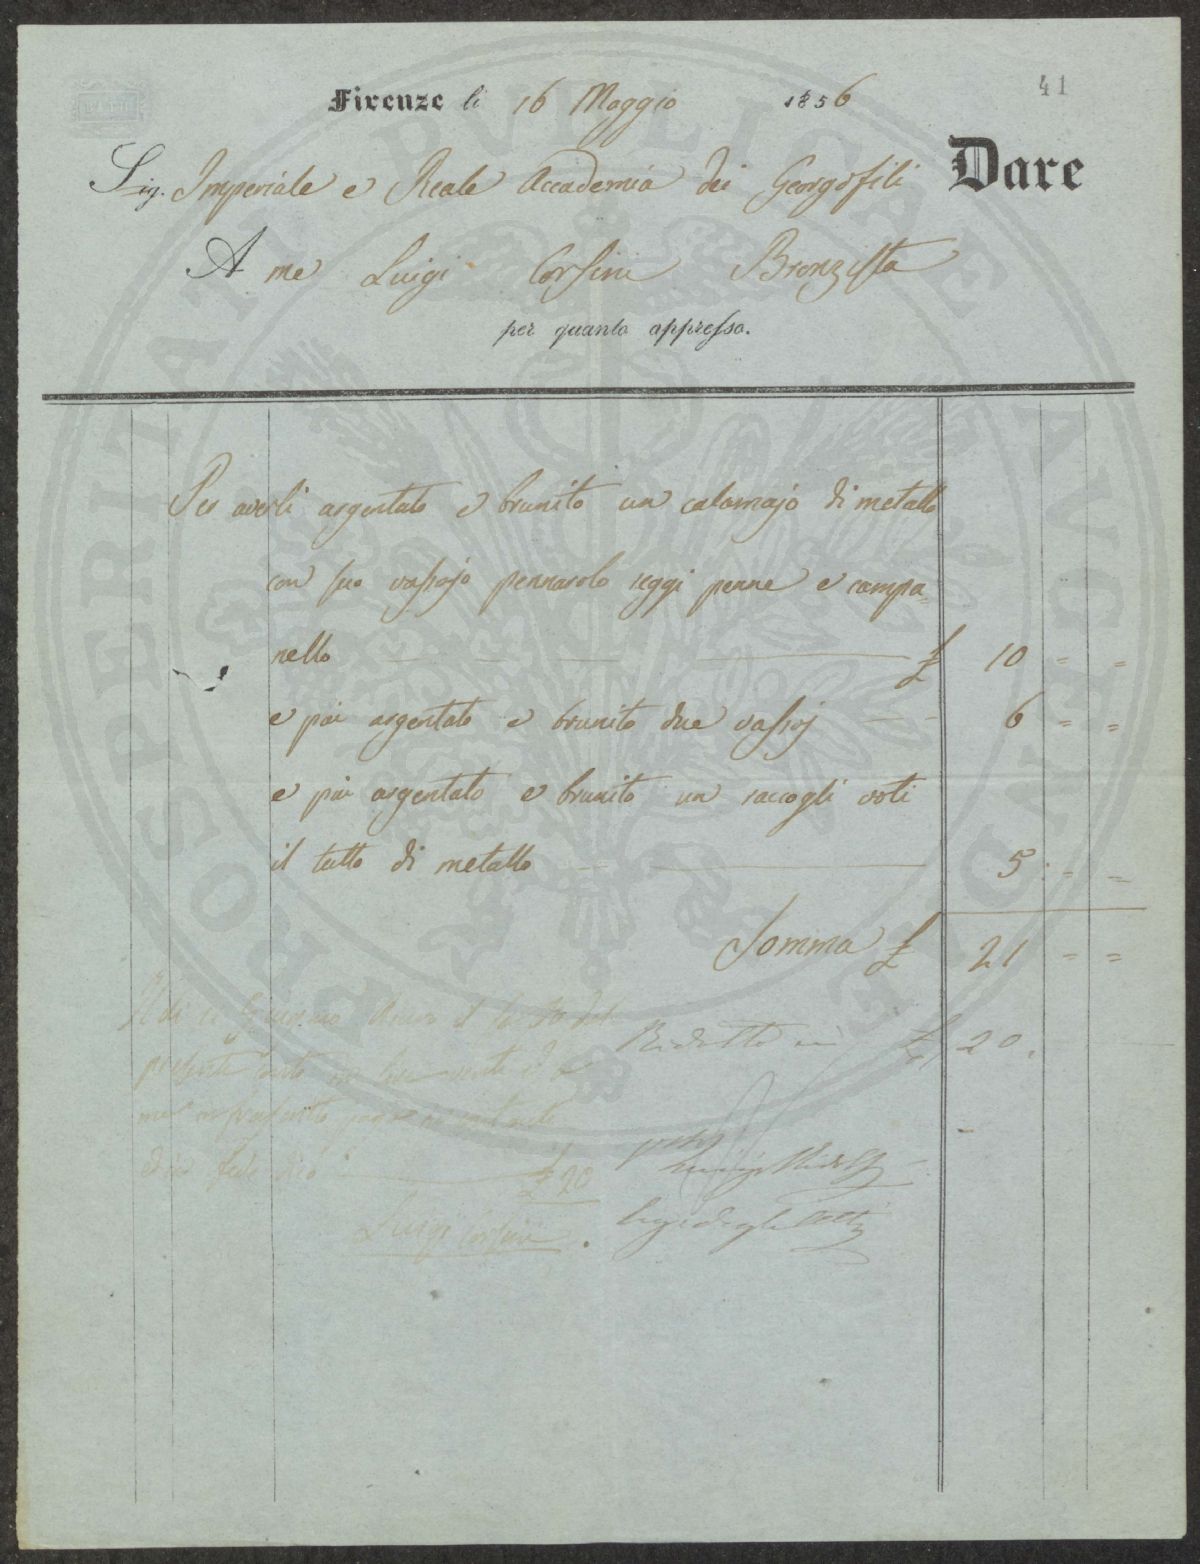 41
Firenze li 16 Maggio 1856
Sig. Imperiale e Reale Accademia dei Georgofili Dare
A me Luigi Corsini Bronzista
per quanto appresso.
Per averli argentato e brunito un calamajo di metallo
con suo vassojo pennarolo reggi penne e campa=
nello £ 10 = =
e più argentato e brunito due vassoj 6 = =
e più argentato e brunito un raccogli voti
il tutto di metallo 5 = =
Somma £ 21 = =
Ridotto in £ 20.
£ 20
Luigi Corsini
PROSPERITATI PVBLICAE AVGENDAE